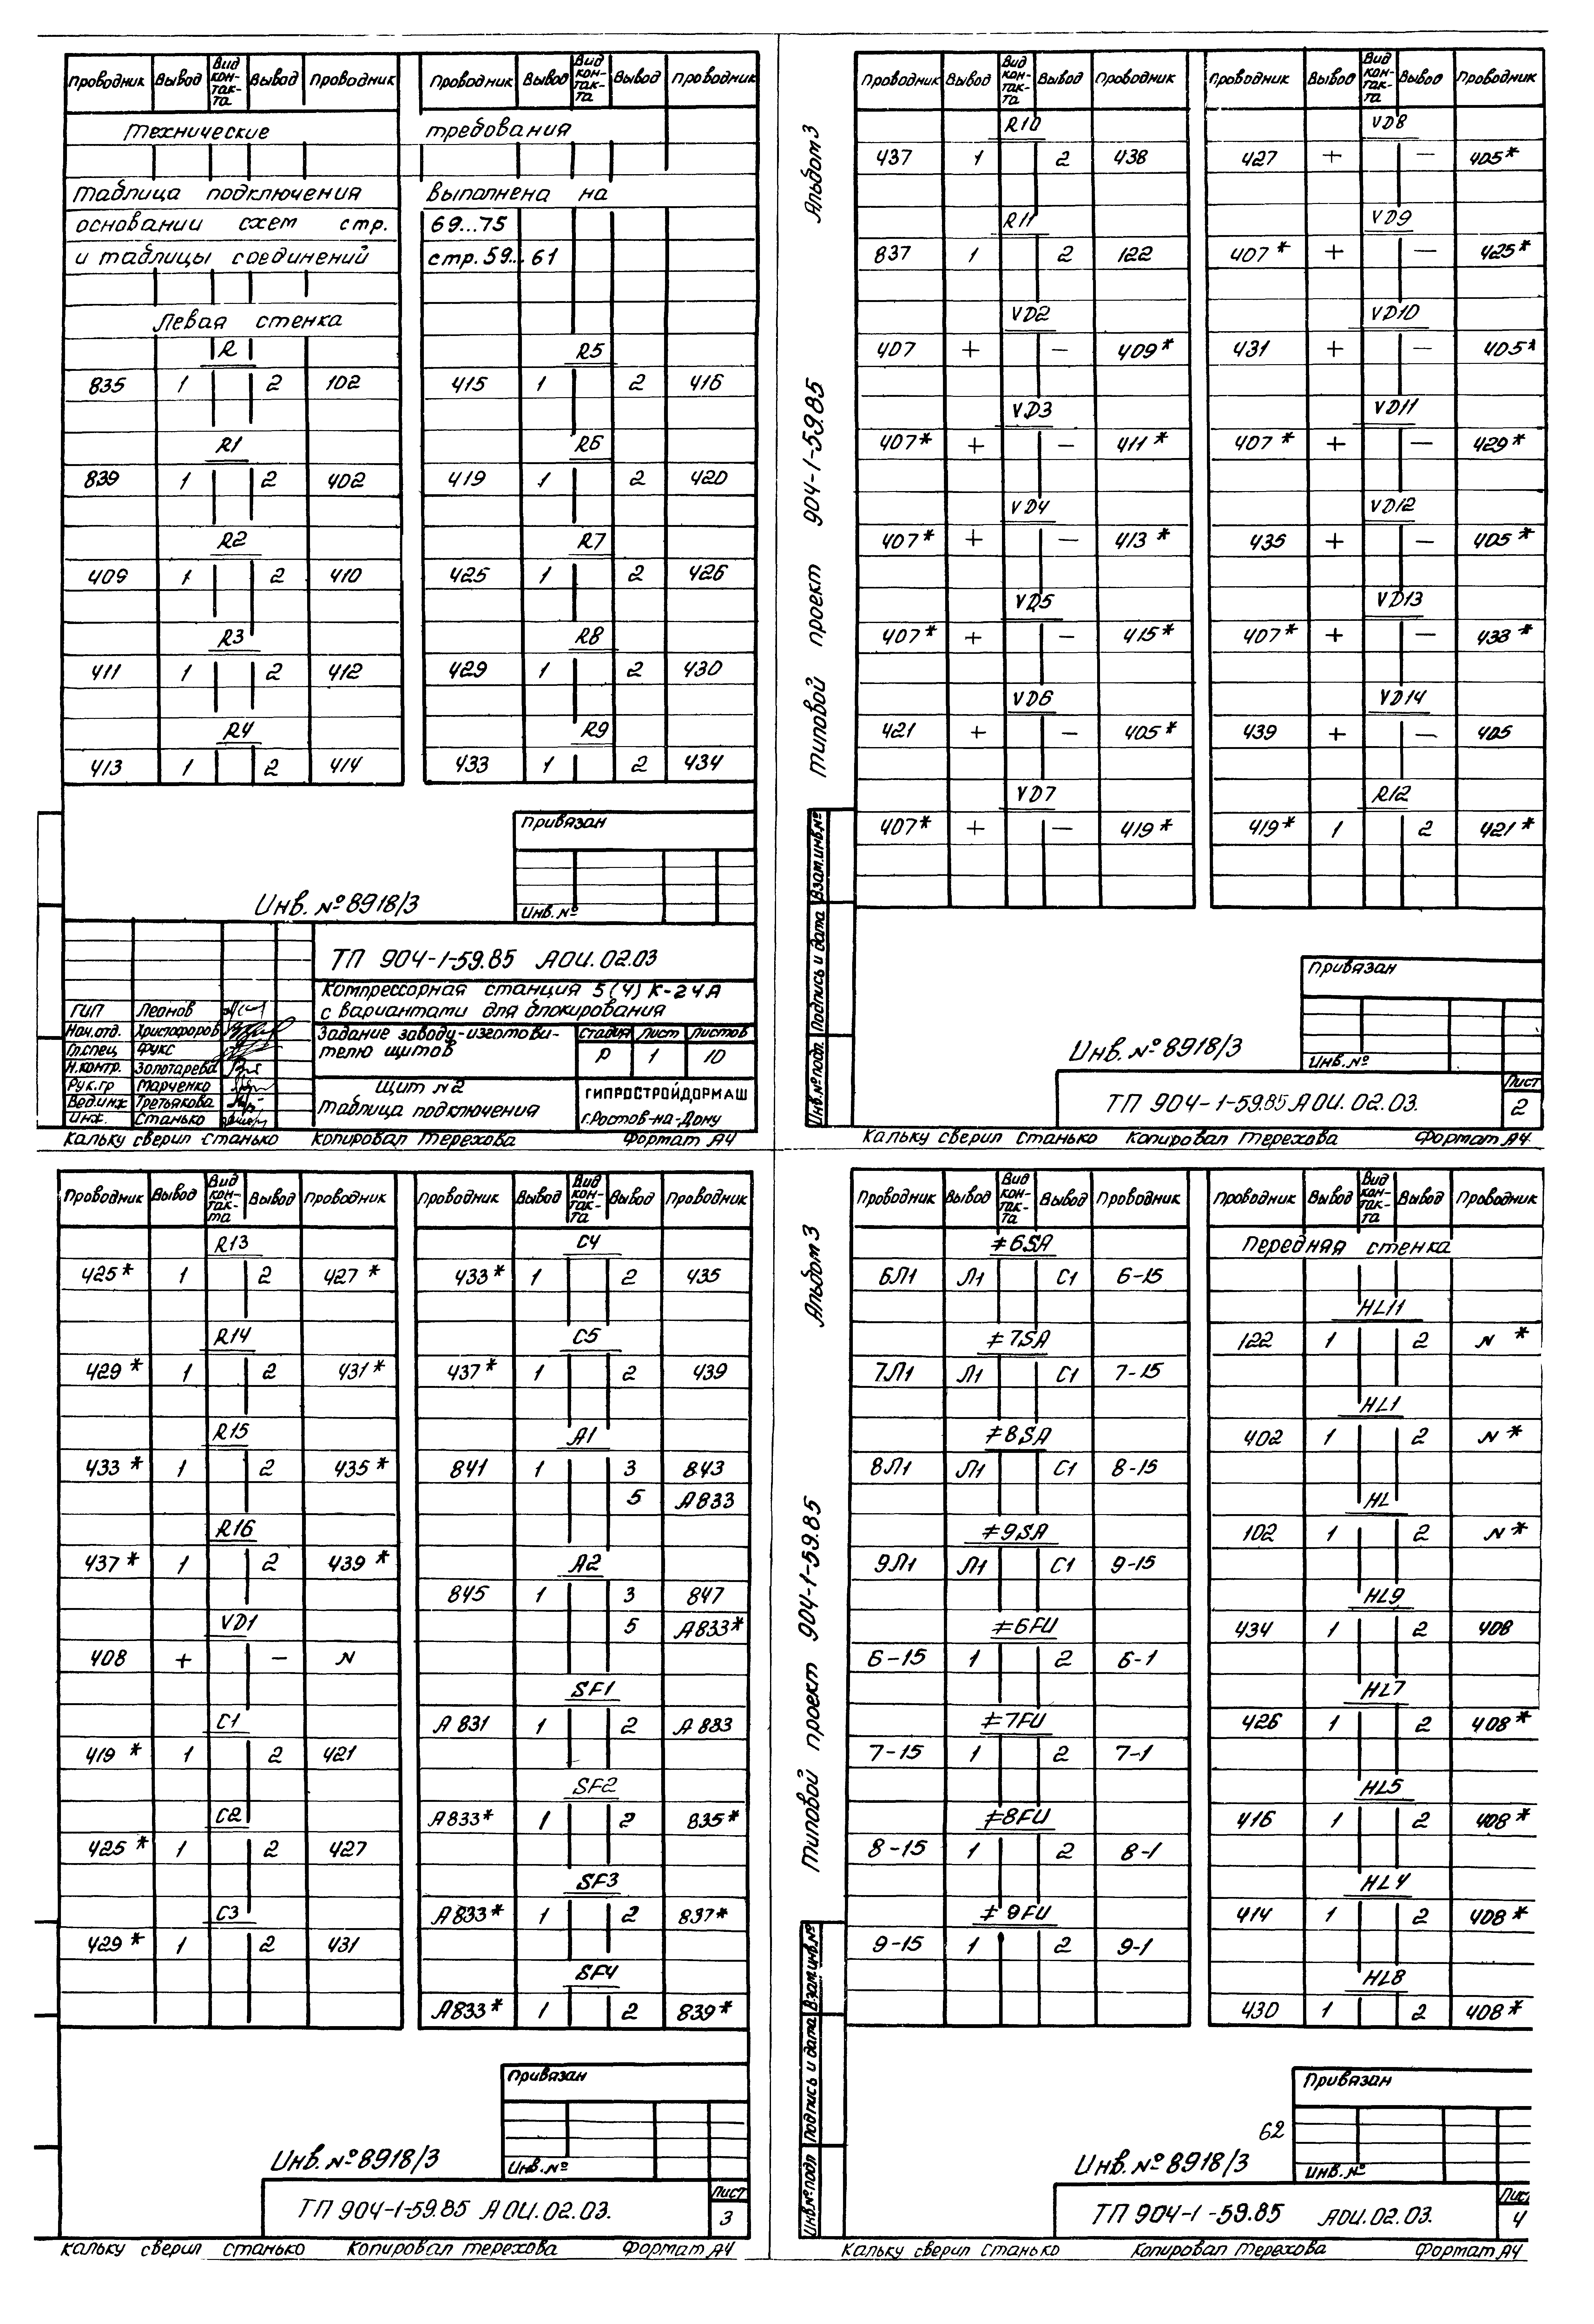 Проводник Вывод Вид контакта Вывод Проводник Проводник Вывод Вид контакта Вывод Проводник
Технические требования
Таблица подключения выполнена на
основании схем стр. 69...75
и таблицы соединений стр. 59...61
Левая стенка
R R5
835 1 2 102 415 1 2 416
R1 R6
839 1 2 402 419 1 2 420
R2 R7
409 1 2 410 425 1 2 426
R3 R8
411 1 2 412 429 1 2 430
R4 R9
413 1 2 414 433 1 2 434
Привязан
Инв. № 8918/3
Инв. №
ТП 904-1-59.85 АОИ.02.03
Компрессорная станция 5(4)К-24А
с вариантами для блокирования
ГИП Леонов
Нач.отд. Христофоров
Гл.спец Фукс
Н.контр. Золотарева
Рук.гр Марченко
Вед.инж Третьякова
Инж. Станько
Задание заводу-изготови-
телю щитов
Стадия Лист Листов
Р 1 10
Щит №2
Таблица подключения
ГИПРОСТРОЙДОРМАШ
г.Ростов-на-Дону
Кальку сверил Станько Копировал Терехова Формат А4
Альбом 3
Типовой проект 904-1-59.85
Проводник Вывод Вид контакта Вывод Проводник Проводник Вывод Вид контакта Вывод Проводник
R10 VD8
437 1 2 438 427 + — 405*
R11 VD9
837 1 2 122 407* + — 425*
VD2 VD10
407 + — 409* 431 + — 405*
VD3 VD11
407* + — 411* 407* + — 429*
VD4 VD12
407* + — 413* 435 + — 405*
VD5 VD13
407* + — 415* 407* + — 433*
VD6 VD14
421 + — 405* 439 + — 405
VD7 R12
407* + — 419* 419* 1 2 421*
Инв.№подл. Подпись и дата Взам.инв.№
Привязан
Инв. № 8918/3
Инв.№
ТП 904-1-59.85 АОИ.02.03.
Лист
2
Кальку сверил Станько Копировал Терехова Формат А4
Проводник Вывод Вид контакта Вывод Проводник Проводник Вывод Вид контакта Вывод Проводник
R13 C4
425* 1 2 427* 433* 1 2 435
R14 C5
429* 1 2 431* 437* 1 2 439
R15 A1
433* 1 2 435* 841 1 3 843
5 А833
R16 A2
437* 1 2 439* 845 1 3 847
VD1 5 А833*
408 + — N
SF1
C1 А831 1 2 А833
419* 1 2 421
SF2
C2 А833* 1 2 835*
425* 1 2 427
SF3
C3 А833* 1 2 837*
429* 1 2 431
SF4
А833* 1 2 839*
Привязан
Инв. № 8918/3
Инв. №
ТП 904-1-59.85 АОИ.02.03.
Лист
3
Кальку сверил Станько Копировал Терехова Формат А4
Альбом 3
Типовой проект 904-1-59.85
Проводник Вывод Вид контакта Вывод Проводник Проводник Вывод Вид контакта Вывод Проводник
≠6SA Передняя стенка
6Л1 Л1 С1 6-15
HL11
≠7SA 122 1 2 N*
7Л1 Л1 С1 7-15
HL1
≠8SA 402 1 2 N*
8Л1 Л1 С1 8-15
HL
≠9SA 102 1 2 N*
9Л1 Л1 С1 9-15
HL9
≠6FU 434 1 2 408
6-15 1 2 6-1
HL7
≠7FU 426 1 2 408*
7-15 1 2 7-1
HL5
≠8FU 416 1 2 408*
8-15 1 2 8-1
HL4
≠9FU 414 1 2 408*
9-15 1 2 9-1
HL8
430 1 2 408*
Инв.№подл Подпись и дата Взам.инв.№
Привязан
62
Инв. № 8918/3
Инв. №
ТП 904-1-59.85 АОИ.02.03.
Лист
4
Кальку сверил Станько Копировал Терехова Формат А4